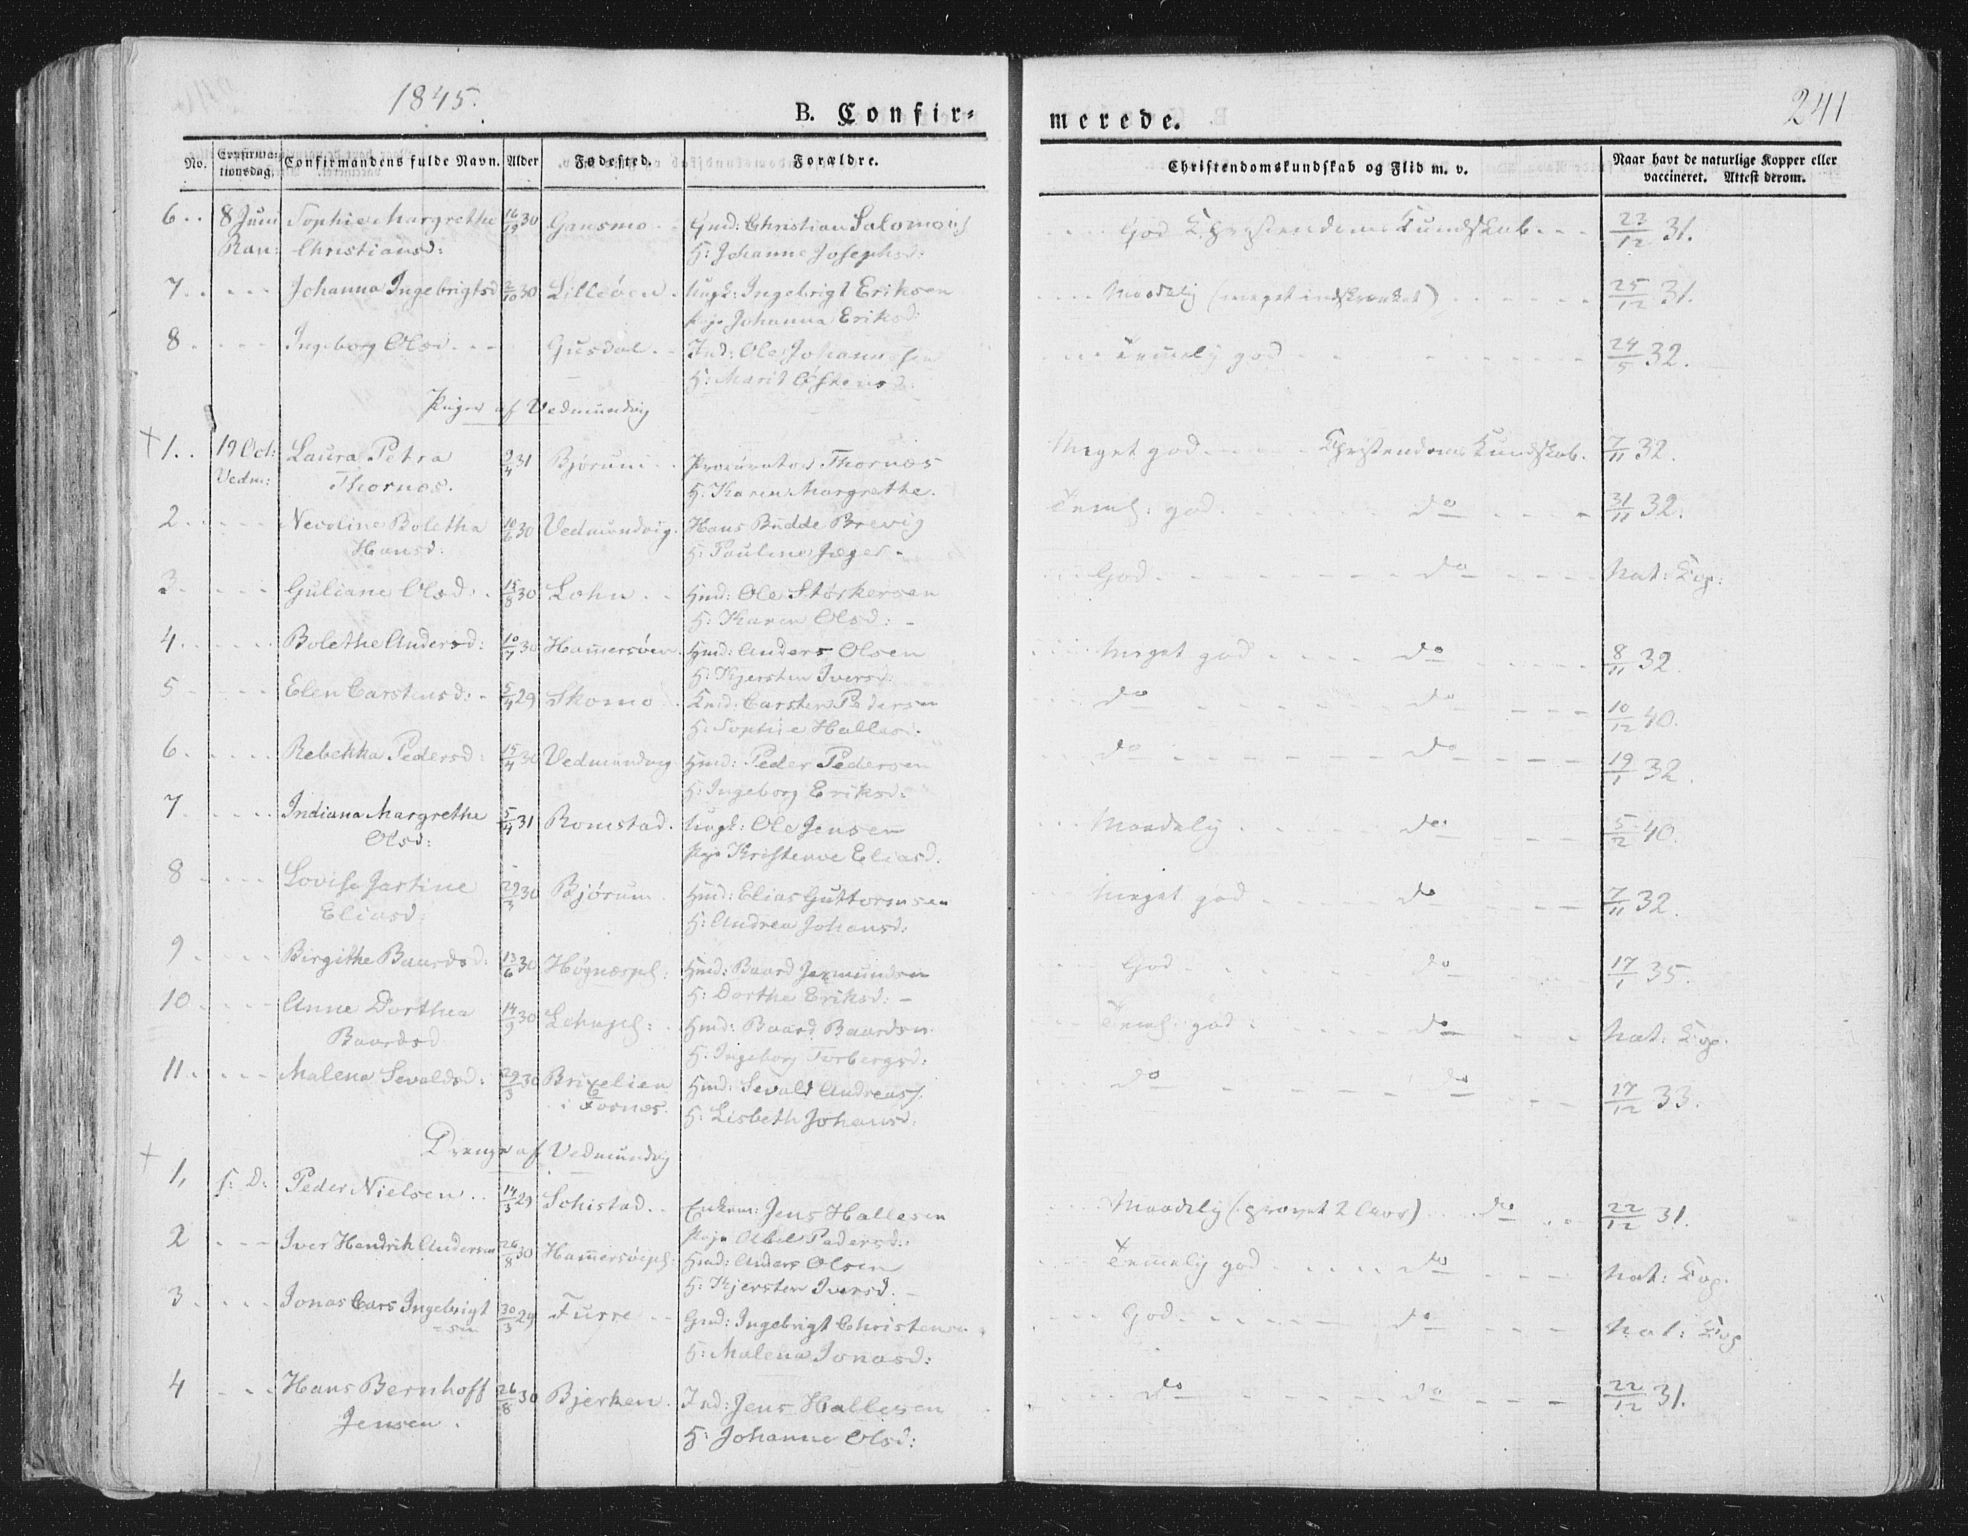 1845.
241
B. Confir-
merede.
No. Confirma-tionsdag. Confirmandens fulde Navn. Alder Fødested. Forældre. Christendomskundskab og Flid m. v. Naar havt de naturlige Kopper eller vaccineret. Attest derom.
6 8 Juni Sophie Margrethe 30 Gansmo Gmd: Christian Salomons God Christendoms Kundskab 22/12 31.
Ran: Christiansd: H: Johanne Josephsd:
7 Johanna Ingebrigtsd 2/10 30 Lilleøen Ungk: Ingebrigt Eriksen Maadelig (meget indskrænket) 25/12 31.
Pige Johanna Eriksd:
8 Ingeborg Olsd Gusdal Ind: Ole Johannesen Temmelig god 24/5 32.
H: Marit Østensd:
Piger af Vedmundvig
+ 1. 19 Oct: Laura Petra 9/4 31 Bjørum Procurator Thornæs Meget god Christendoms Kundskab. 7/11 32.
Vedm: Thornæs. H: Karen Margrethe.
2 Nicoline Boletha 10/6 30 Vedmundvig Hans Budde Brevig Teml: god do 31/11 32.
Hansd: H: Pauline Jæger
3 Guliane Olsd: 15/8 30 Lohn Hmd: Ole Størkersen God do nat: Kop:
H: Karen Olsd:
4 Bolethe Andersd: 10/7 30 Hammersøen Hmd: Anders Olsen Meget god do 8/11 32.
H: Kjersten Iversd:
5 Elen Carstensd: 5/4 29 Skomo Hmd: Carsten Pedersen do do 10/12 40.
H: Sophie Hallesd.
6 Rebekka Pedersd: 15/4 30 Vedmundvig Hmd: Peder Pedersen do do 19/1 32.
H: Ingeborg Eriksd:
7 Indiana Margrethe 5/4 31 Romstad Ungk: Ole Jensen Maadelig do 5/2 40.
Olsd: Pige Kristenve Eliasd.
8 Lovise Jastine 29/3 30 Bjørum Hmd: Elias Guttormsen Meget god do 7/11 32.
Eliasd: H: Andrea Johansd:
9 Birgithe Baardsd: 13/6 30 Høgnæspl: Hmd: Baard Jermundsen God do 17/1 35.
H: Dorthe Eriksd:
10 Anne Dorthea 14/9 30 Hmd: Baard Baardsn. Teml: god do nat: Kop.
Baardsd H: Ingeborg Torbergsd:
11. Malena Sevaldsd: 29/3 30 Brixelien Hmd: Sevald Andreas. do do 17/12 33.
i Fornæs. H: Lisbeth Johansd:
Drenge af Vedmundvig
+ 1, s: D: Peder Nielsen 14/3 29 Schistad Enkem: Jens Hallesen Maadelig (prøvet 2 Aar) do 22/12 31.
Pige Abel Pedersd:
2 Iver Hendrik Andersen 26/8 30 Hammersøepl: Hmd: Anders Olsen Temmelig god do nat: Kop.
H: Kjersten Iversd.
3 Jonas Cars Ingebrigt 30/3 29 Furre Gmd: Ingebrigt Christensen God do nat: Kop
sen H: Malena Jonasd:
4 Hans Bernhoff 26/8 30 Bjerken Ind: Jens Hallesen do do 22/12 31.
Jensen. H: Johanne Olsd: